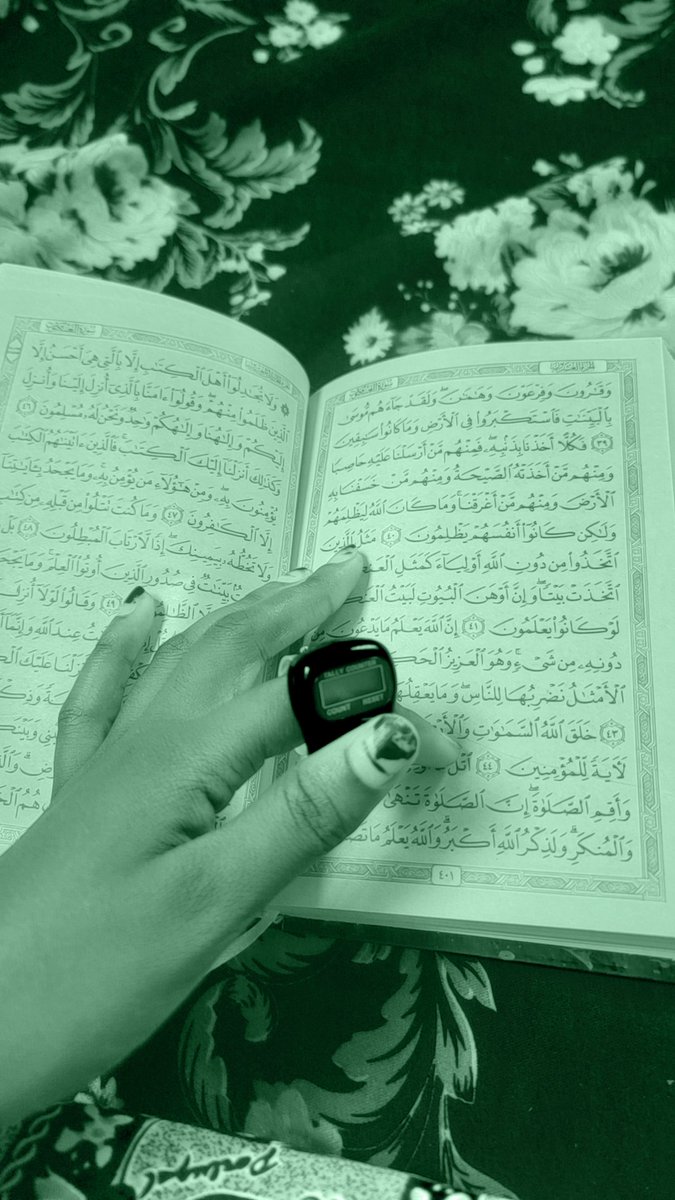 وَقَـٰرُونَ وَفِرْعَوْنَ وَهَـٰمَـٰنَ ۖ وَلَقَدْ جَآءَهُم مُّوسَىٰ
بِٱلْبَيِّنَـٰتِ فَٱسْتَكْبَرُوا۟ فِى ٱلْأَرْضِ وَمَا كَانُوا۟ سَـٰبِقِينَ
٣٩ فَكُلًّا أَخَذْنَا بِذَنۢبِهِۦ ۖ فَمِنْهُم مَّنْ أَرْسَلْنَا عَلَيْهِ حَاصِبًا
وَمِنْهُم مَّنْ أَخَذَتْهُ ٱلصَّيْحَةُ وَمِنْهُم مَّنْ خَسَفْنَا بِهِ
ٱلْأَرْضَ وَمِنْهُم مَّنْ أَغْرَقْنَا ۚ وَمَا كَانَ ٱللَّهُ لِيَظْلِمَهُمْ
وَلَـٰكِن كَانُوٓا۟ أَنفُسَهُمْ يَظْلِمُونَ ٤٠ مَثَلُ ٱلَّذِينَ
ٱتَّخَذُوا۟ مِن دُونِ ٱللَّهِ أَوْلِيَآءَ كَمَثَلِ
ٱتَّخَذَتْ بَيْتًا ۖ وَإِنَّ أَوْهَنَ ٱلْبُيُوتِ لَبَيْتُ
لَوْ كَانُوا۟ يَعْلَمُونَ ٤١ إِنَّ ٱللَّهَ يَعْلَمُ مَا يَدْعُونَ
دُونِهِۦ مِن شَىْءٍ ۚ وَهُوَ ٱلْعَزِيزُ
ٱلْأَمْثَـٰلُ نَضْرِبُهَا لِلنَّاسِ ۖ وَمَا يَعْقِلُهَا
٤٣ خَلَقَ ٱللَّهُ ٱلسَّمَـٰوَٰتِ
لَـَٔايَةً لِّلْمُؤْمِنِينَ ٤٤ ٱتْلُ
وَأَقِمِ ٱلصَّلَوٰةَ ۖ إِنَّ ٱلصَّلَوٰةَ تَنْهَىٰ
وَٱلْمُنكَرِ ۗ وَلَذِكْرُ ٱللَّهِ أَكْبَرُ ۗ وَٱللَّهُ يَعْلَمُ مَا
٤٠١
۞ وَلَا تُجَـٰدِلُوٓا۟ أَهْلَ ٱلْكِتَـٰبِ إِلَّا بِٱلَّتِى هِىَ أَحْسَنُ إِلَّا
ٱلَّذِينَ ظَلَمُوا۟ مِنْهُمْ ۖ وَقُولُوٓا۟ ءَامَنَّا بِٱلَّذِىٓ أُنزِلَ إِلَيْنَا وَأُنزِلَ
إِلَيْكُمْ وَإِلَـٰهُنَا وَإِلَـٰهُكُمْ وَٰحِدٌ وَنَحْنُ لَهُۥ مُسْلِمُونَ ٤٦
وَكَذَٰلِكَ أَنزَلْنَآ إِلَيْكَ ٱلْكِتَـٰبَ ۚ فَٱلَّذِينَ ءَاتَيْنَـٰهُمُ ٱلْكِتَـٰبَ
يُؤْمِنُونَ بِهِۦ ۖ وَمِنْ هَـٰٓؤُلَآءِ مَن يُؤْمِنُ بِهِۦ ۚ وَمَا يَجْحَدُ بِـَٔايَـٰتِنَآ
إِلَّا ٱلْكَـٰفِرُونَ ٤٧ وَمَا كُنتَ تَتْلُوا۟ مِن قَبْلِهِۦ مِن كِتَـٰبٍ
وَلَا تَخُطُّهُۥ بِيَمِينِكَ ۖ إِذًا لَّٱرْتَابَ ٱلْمُبْطِلُونَ ٤٨ بَلْ
بَيِّنَـٰتٌ فِى صُدُورِ ٱلَّذِينَ أُوتُوا۟ ٱلْعِلْمَ ۚ وَمَا يَجْحَدُ
٤٩ وَقَالُوا۟ لَوْلَآ أُنزِلَ
عِندَ ٱللَّهِ وَإِنَّمَآ
عَلَيْكَ
TALLY COUNTER
COUNT RESET
Portugal